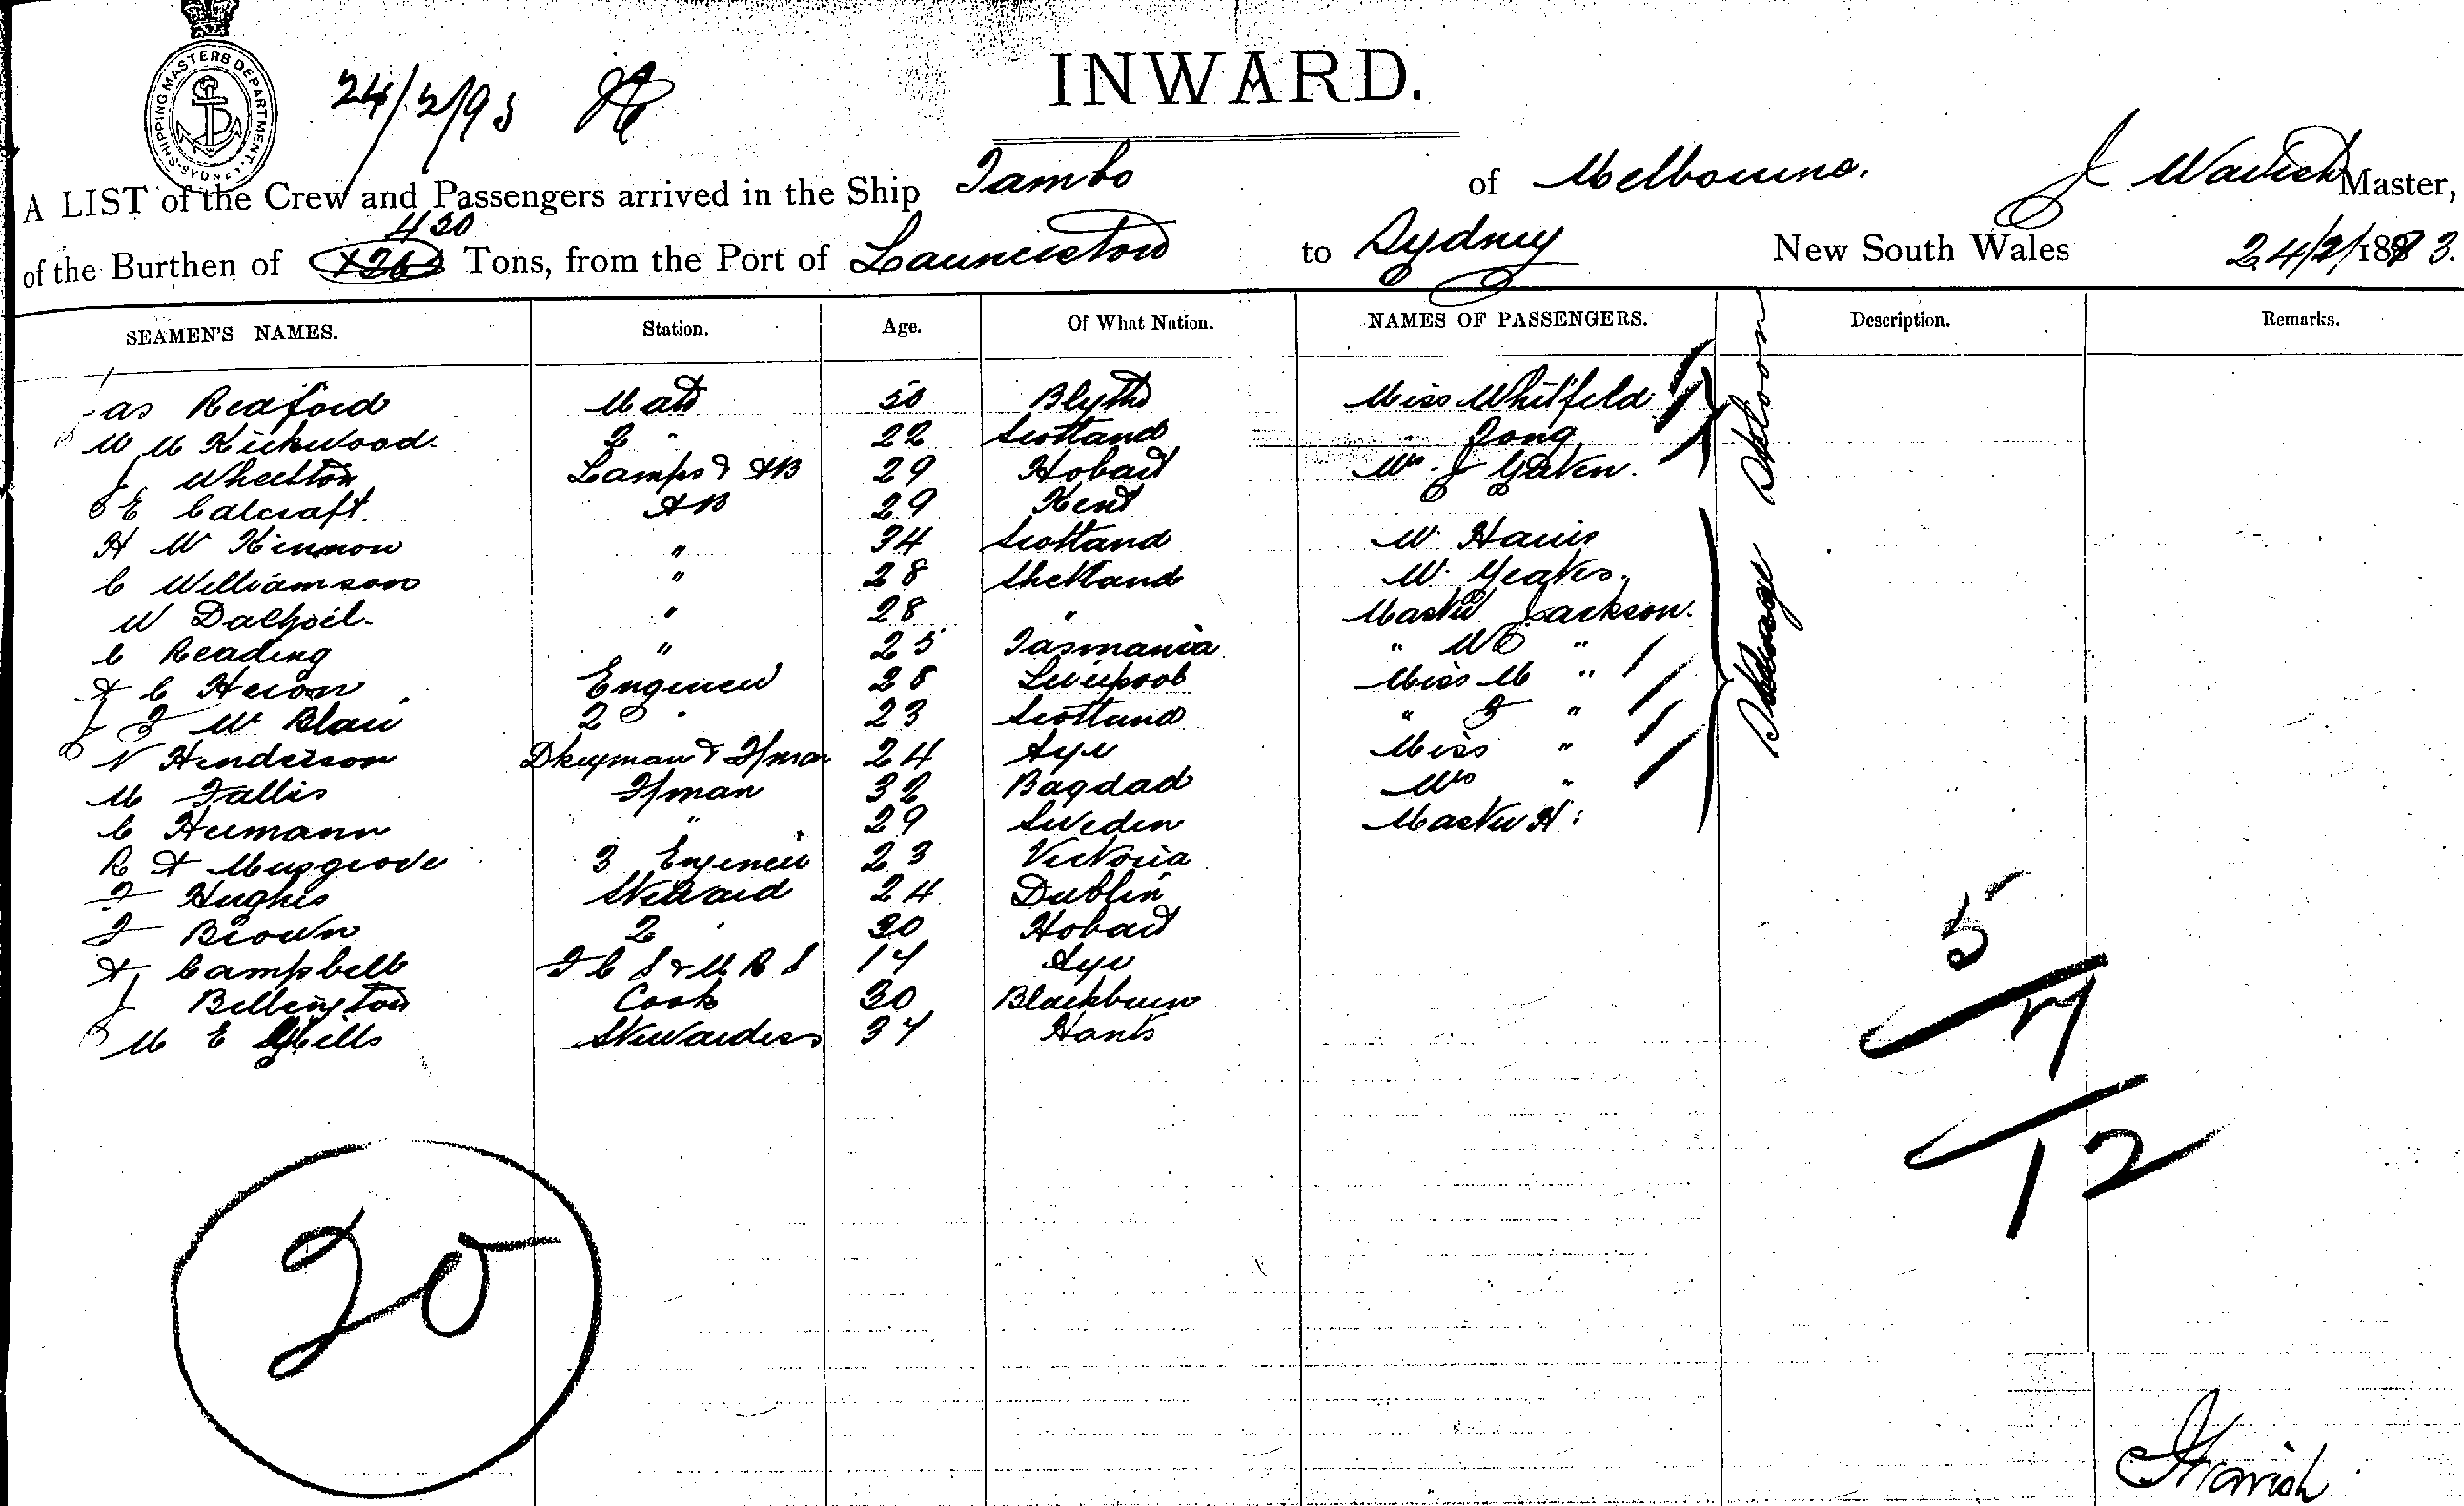 SHIPPING MASTERS DEPARTMENT. SYDNEY
24/2/93
INWARD.
A LIST of the Crew and Passengers arrived in the Ship Tambo of Melbourne. J Wavish Master,
430
of the Burthen of Tons, from the Port of Launceston to Sydney New South Wales 24/2/1893.
SEAMEN'S NAMES. Station. Age. Of What Nation. NAMES OF PASSENGERS. Description. Remarks.
Jas Redford Mate 50 Blyth Miss Whitfeld
W M Kirkwood. 2 " 22 Scotland " Jong
J Wheelton Lamps & AB 29 Hobart Mr J Gaken.
E Calcraft. AB 29 Kent
H W Kinnon " 34 Scotland W. Harris
C Williamson " 28 Shetland W. Yeates.
W Dalhoil. " 28 " Master Jackson.
C Reading " 25 Tasmania " W C "
A C Heron Engineer 28 Liverpool Miss M "
J F W Blair 2 " 23 Scotland " F "
N Henderson Dkeyman & F/man 24 Ayr Miss "
M Tallis F/man 32 Bagdad Mrs "
C Hermann " 29 Sweden Master H:
R A Musgrove 3 Engineer 23 Victoria
F Hughes Steward 24 Dublin
F Brown 2 " 30 Hobart
A Campbell F C S & M R S 17 Ayr
J Billington Cook 30 Blackburn
M E Mills Stewardess 37 Hants
Saloon
Steerage
5
7
12
20
J Wavish